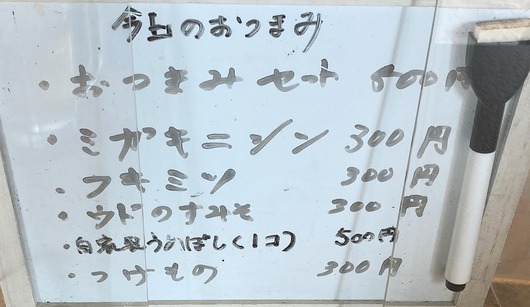 今日のおつまみ
・おつまみセット 500円
・ミガキニシン 300円
・フキミソ 300円
・ウドのすみそ 300円
・自家製うめぼし(1コ) 500円
・つけもの 300円